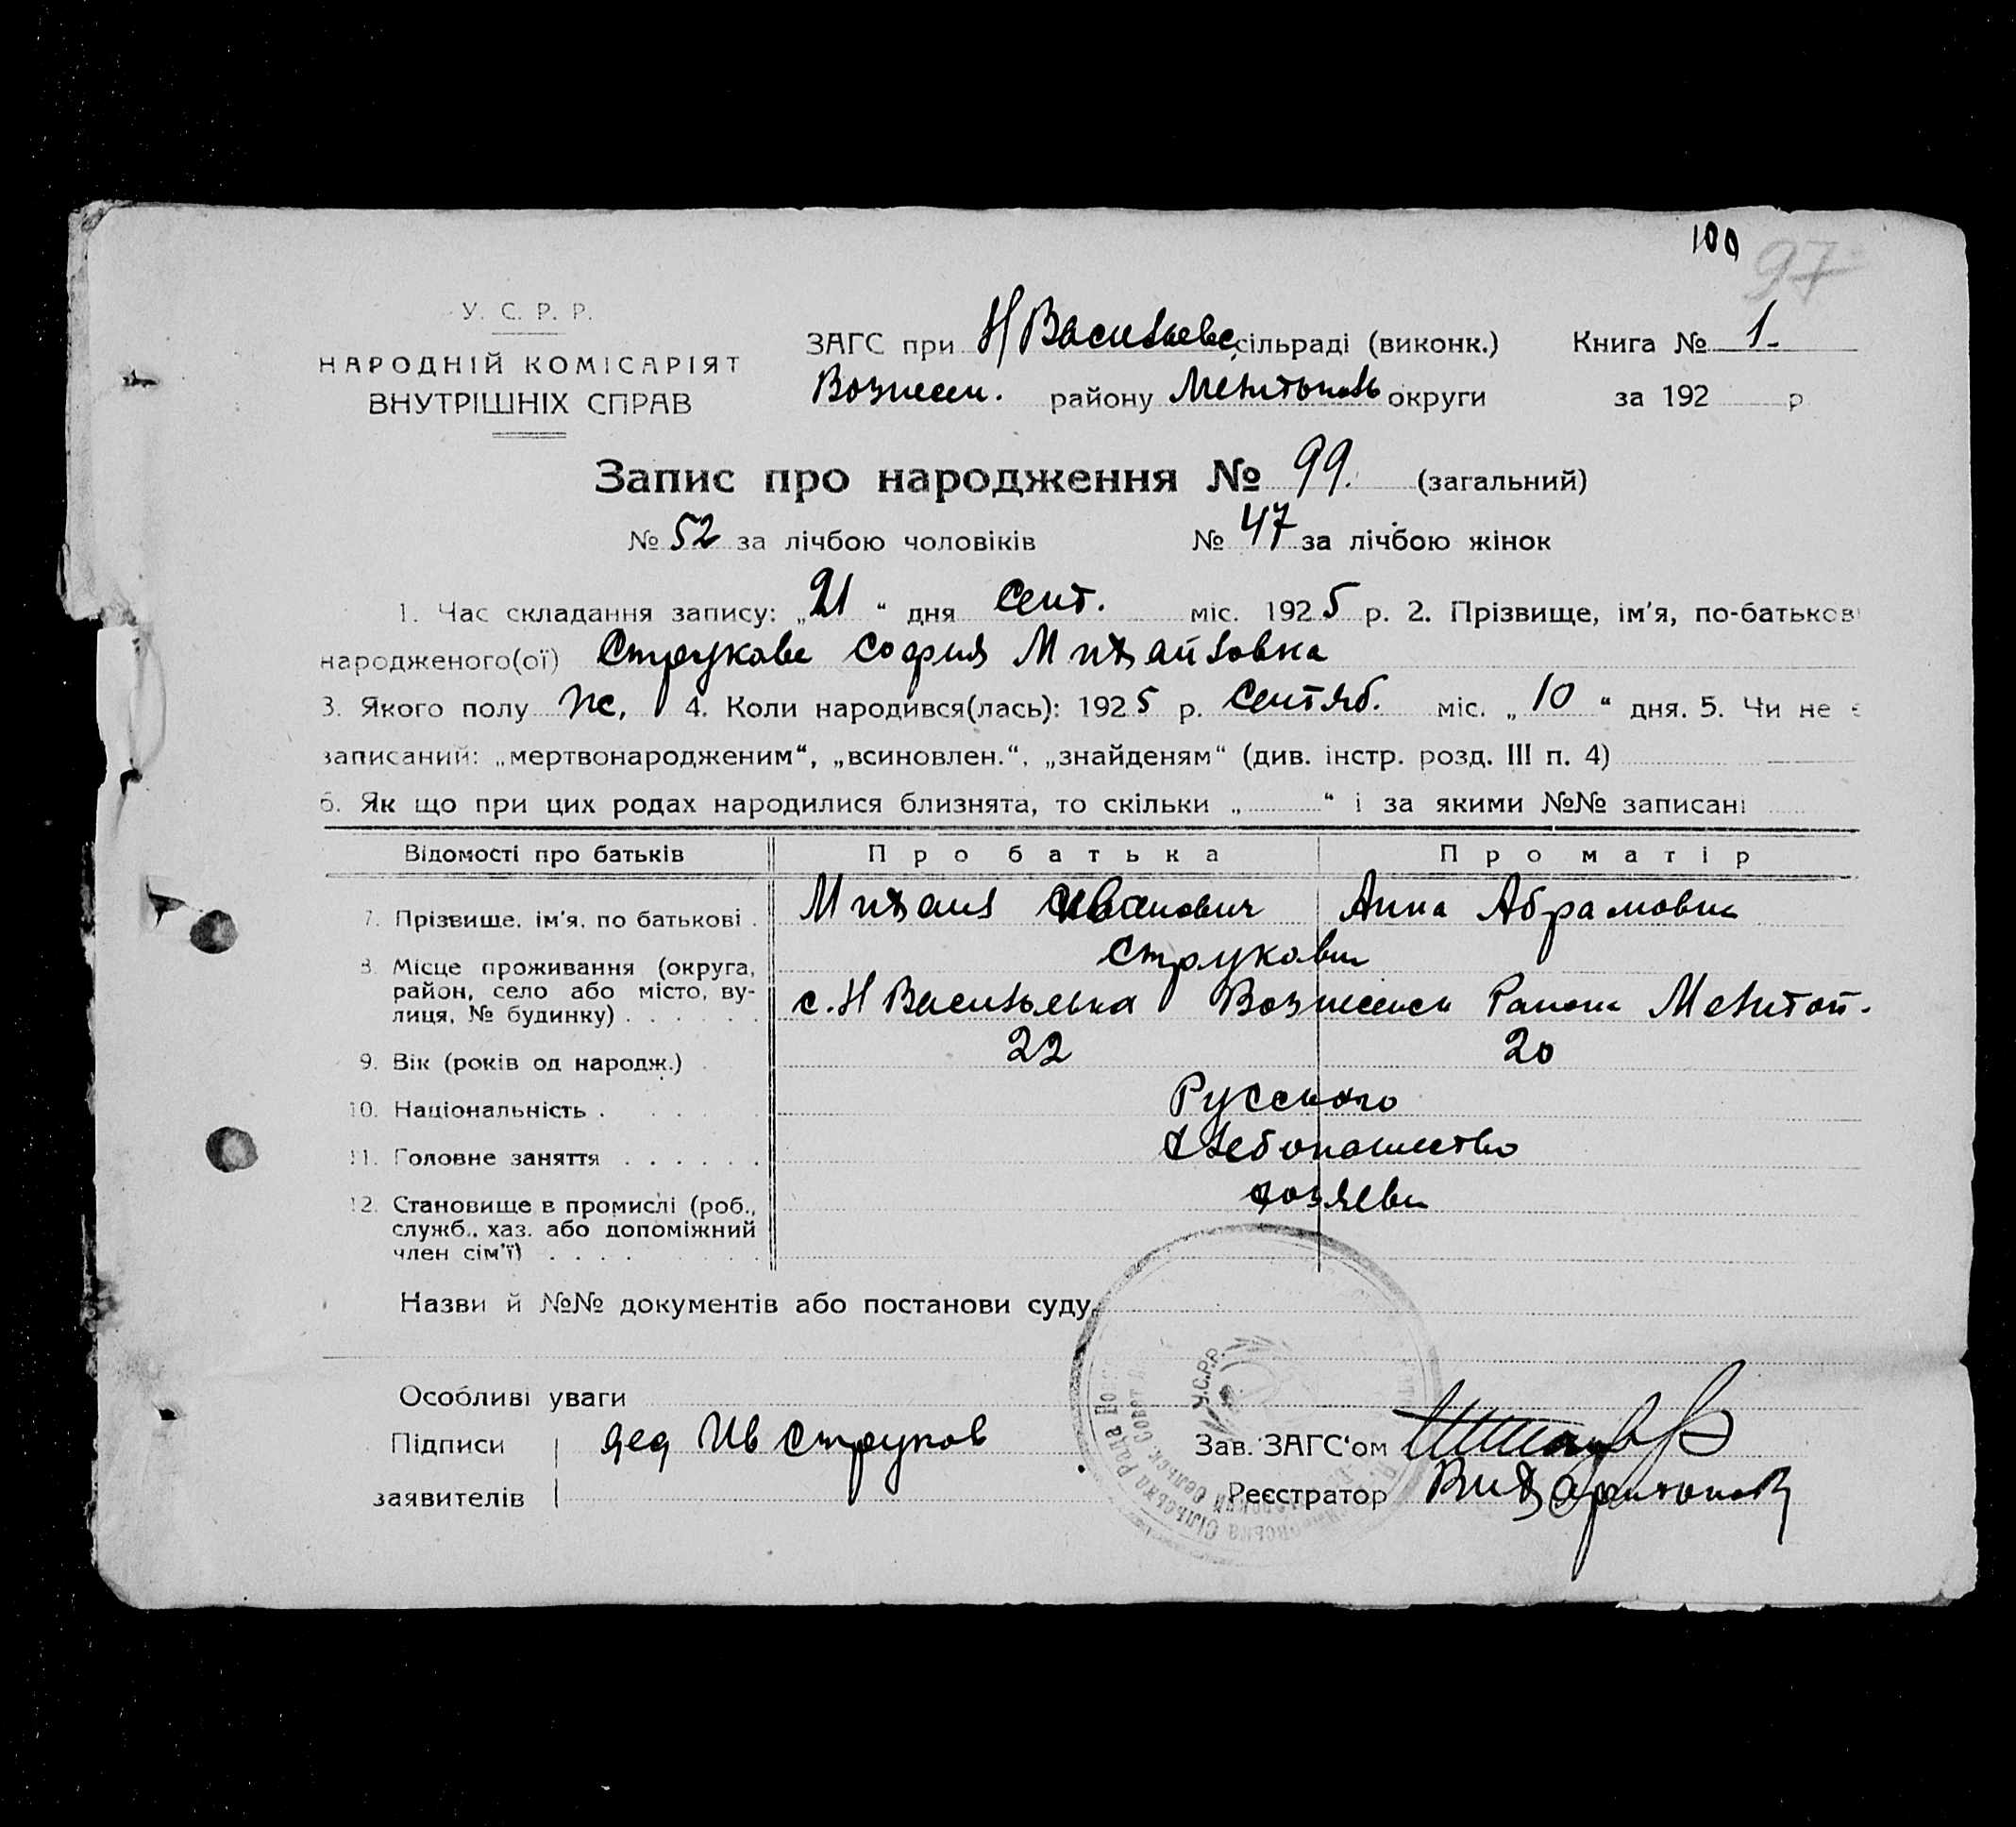 100
97
У. С. Р. Р.
НАРОДНІЙ КОМІСАРІЯТ
ВНУТРІШНІХ СПРАВ
ЗАГС при Н Васильевс сільраді (виконк.) Книга № 1.
Вознесен. району Мелитополь округи за 192 р
Запис про народження № 99. (загальний)
№ 52 за лічбою чоловіків № 47 за лічбою жінок
1. Час складання запису: „21“ дня Сент. міс. 1925 р. 2. Прізвище, ім'я, по-батькові
народженого(ої) Струкова София Михайловна
3. Якого полу ж. 4. Коли народився(лась): 1925 р. Сентяб. міс. „10“ дня. 5. Чи не є
записаний: „мертвонародженим“, „всиновлен.“, „знайденям“ (див. інстр. розд. III п. 4)
6. Як що при цих родах народилися близнята, то скільки „ “ і за якими №№ записані
Відомості про батьків Про батька Про матір
7. Прізвище, ім'я, по батькові . Михаил Иванович Анна Абрамовна
Струковы
8. Місце проживання (округа, район, село або місто, вулиця, № будинку) . . . . . . с. Н Васильевка Вознесенск Района Мелитоп.
9. Вік (років од народж.) . 22 20
10. Національність . . . . Русского
11. Головне заняття . . . . . . Хлебопашество
12. Становище в промислі (роб., служб., хаз. або допоміжний член сім'ї) . . . . хозяева
Назви й №№ документів або постанови суду
Особливі уваги
Підписи дед Ив Струков Зав. ЗАГС'ом
заявителів Реєстратор
У.С.Р.Р.
Сільська Рада